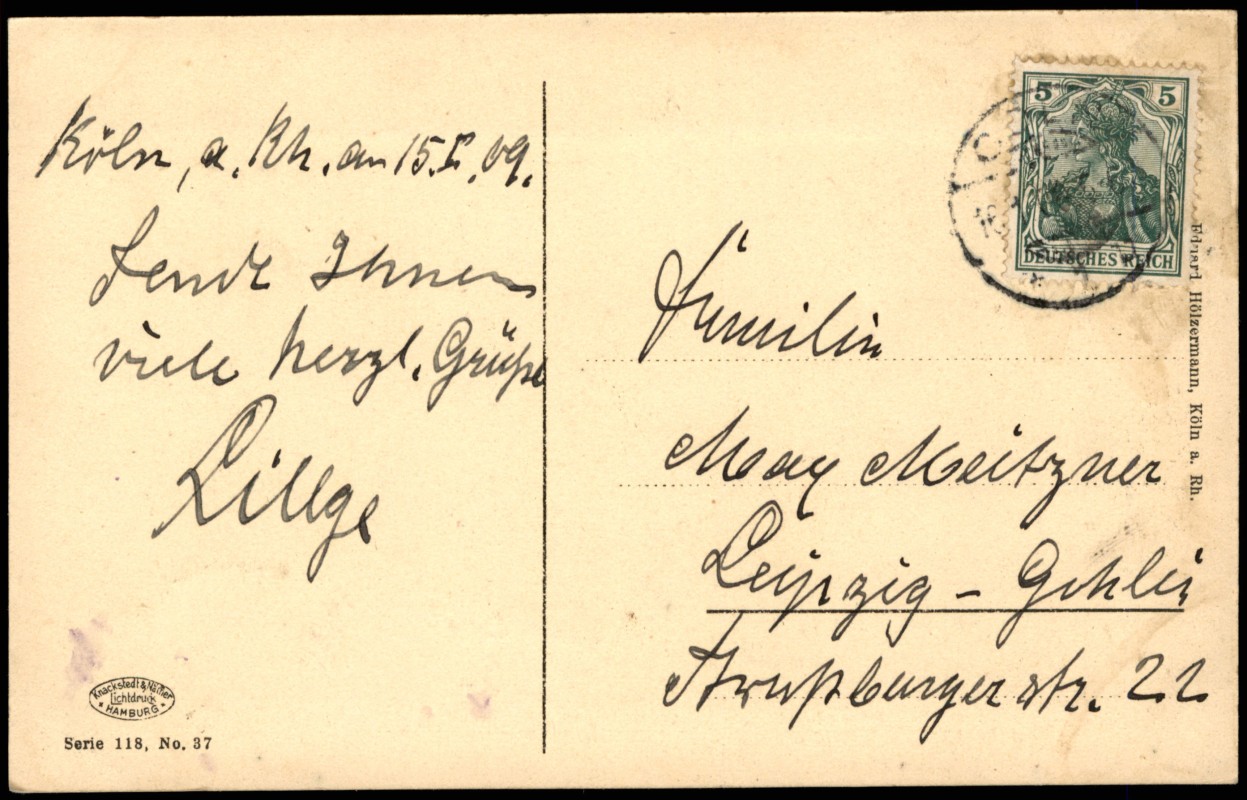 Köln, a. Rh. am 15.I.09.
Sende Ihnen
viele herzl. Grüße
Knackstedt & Näther
Lichtdruck
HAMBURG
Serie 118, No. 37
5 5
DEUTSCHES REICH
Familie
Max Meitzner
Leipzig - Gohlis
Straßburger str. 22
Eduard Hölzermann, Köln a. Rh.